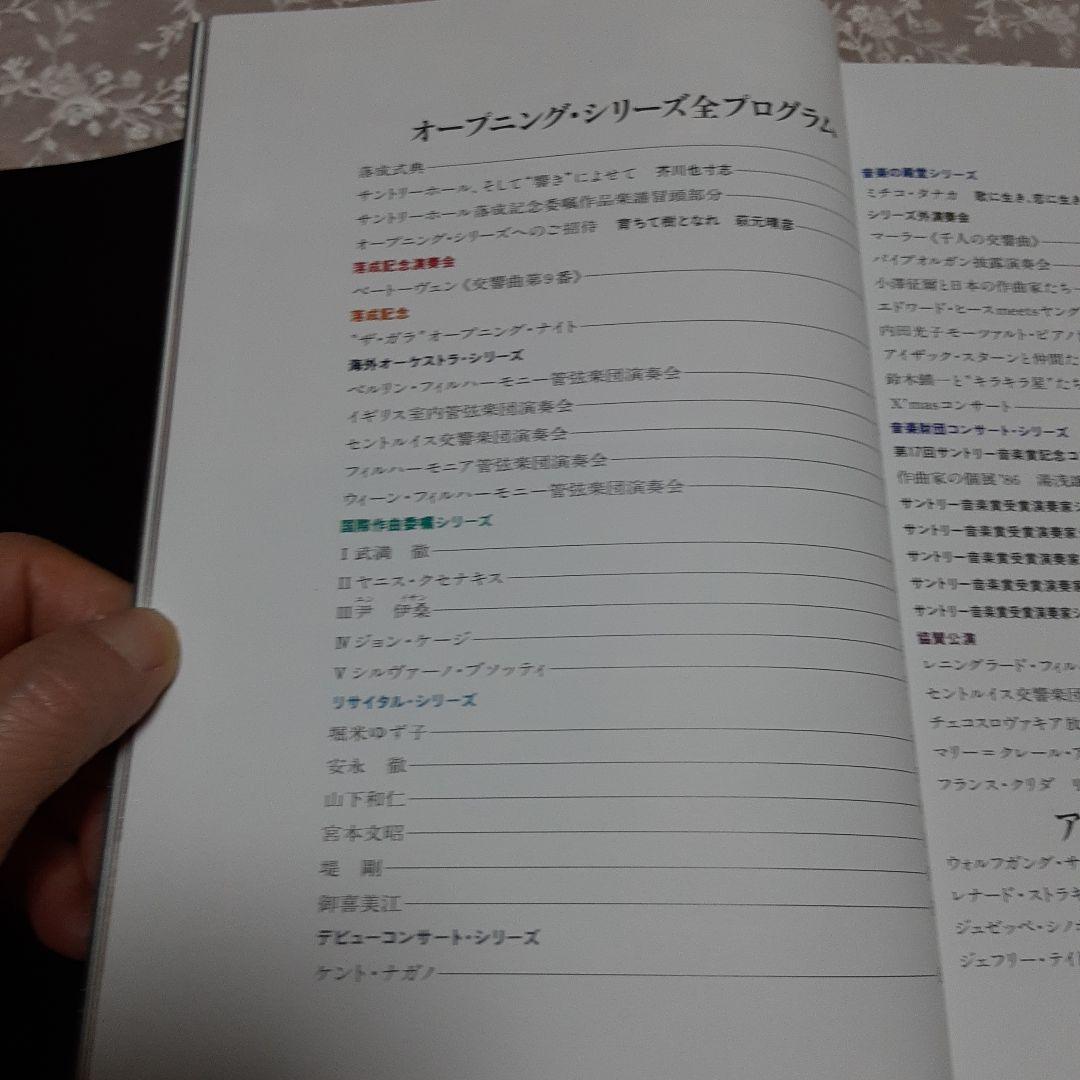 オープニング・シリーズ全プログラム
落成式典
サントリーホール、そして"響き"によせて 芥川也寸志
サントリーホール落成記念委嘱作品楽譜冒頭部分
オープニング・シリーズへのご招待 育ちて樹となれ 萩元晴彦
落成記念演奏会
ベートーヴェン《交響曲第9番》
落成記念
"ザ・ガラ"オープニング・ナイト
海外オーケストラ・シリーズ
ベルリン・フィルハーモニー管弦楽団演奏会
イギリス室内管弦楽団演奏会
セントルイス交響楽団演奏会
フィルハーモニア管弦楽団演奏会
ウィーン・フィルハーモニー管弦楽団演奏会
国際作曲委嘱シリーズ
I 武満 徹
II ヤニス・クセナキス
ユン イサン
III 尹 伊桑
IV ジョン・ケージ
V シルヴァーノ・ブソッティ
リサイタル・シリーズ
堀米ゆず子
安永 徹
山下和仁
宮本文昭
堤 剛
御喜美江
デビューコンサート・シリーズ
ケント・ナガノ
音楽の殿堂シリーズ
ミチコ・タナカ 歌に生き、恋に生き
シリーズ外演奏会
マーラー《千人の交響曲》
パイプオルガン披露演奏会
小澤征爾と日本の作曲家たち
エドワード・ヒースmeetsヤング
内田光子モーツァルト・ピアノ
アイザック・スターンと仲間た
鈴木鎮一と"キラキラ星"たち
X'masコンサート
音楽財団コンサート・シリーズ
第17回サントリー音楽賞記念コ
作曲家の個展'86 湯浅譲
サントリー音楽賞受賞演奏家シ
サントリー音楽賞受賞演奏家
サントリー音楽賞受賞演奏家
サントリー音楽賞受賞演奏家
サントリー音楽賞受賞演奏家シ
協賛公演
レニングラード・フィル
セントルイス交響楽団
チェコスロヴァキア放
マリー＝クレール・ア
フランス・クリダ リ
ア
ウォルフガング・サ
レナード・ストラキ
ジュゼッペ・シノ
ジェフリー・テイト